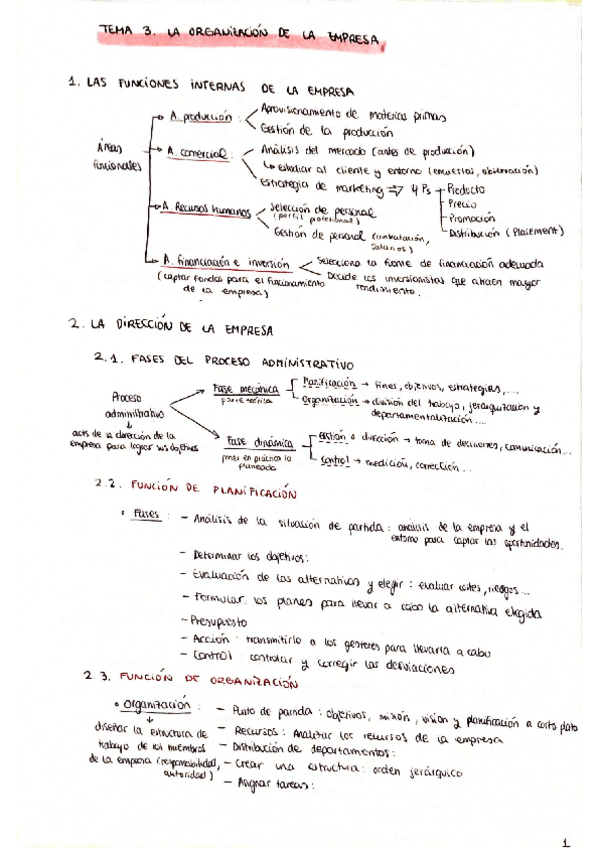 TEMA 3. LA ORGANIZACIÓN DE LA EMPRESA.
1. LAS FUNCIONES INTERNAS DE LA EMPRESA
Áreas funcionales
A. producción:
Aprovisionamiento de materias primas
Gestión de la producción
A. comercial:
Análisis del mercado (antes de producción)
estudiar al cliente y entorno (encuestas, observación)
Estrategia de marketing => 4 Ps
Producto
Precio
Promoción
Distribución (Placement)
A. Recursos humanos
Selección de personal
(perfil profesional)
Gestión de personal (contratación, salarios)
A. financiación e inversión
(captar fondos para el funcionamiento
de la empresa)
Selecciona la fuente de financiación adecuada
Decide las inversionistas que atraen mayor
rendimiento.
2. LA DIRECCIÓN DE LA EMPRESA
2.1. FASES DEL PROCESO ADMINISTRATIVO
Proceso
administrativo
acts de la dirección de la
empresa para lograr sus objetivos
Fase mecánica
parte teórica
Planificación → fines, objetivos, estrategias,...
Organización → división del trabajo, jerarquización y
departamentalización....
Fase dinámica
poner en práctica lo
planeado
Gestión o dirección → toma de decisiones, comunicación...
Control → medición, corrección...
2.2. FUNCIÓN DE PLANIFICACIÓN
• Fases: - Análisis de la situación de partida: análisis de la empresa y el
entorno para captar las oportunidades.
- Determinar los objetivos:
- Evaluación de las alternativas y elegir: evaluar costes, riesgos...
- Formular los planes para llevar a cabo la alternativa elegida
- Presupuesto
- Acción: transmitirlo a los gestores para llevarla a cabo
- Control: controlar y corregir las desviaciones
2.3. FUNCIÓN DE ORGANIZACIÓN
• Organización:
diseñar la estructura de
trabajo de los miembros
de la empresa (responsabilidad,
autoridad)
- Punto de partida: objetivos, misión, visión y planificación a corto plazo
- Recursos: Analizar los recursos de la empresa
- Distribución de departamentos:
- Crear una estructura: orden jerárquico
- Asignar tareas:
1